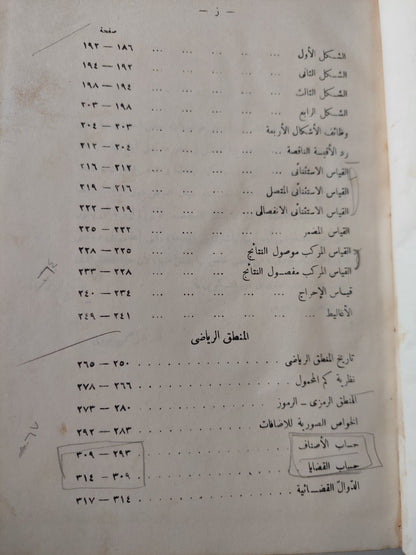 — ز —
صفحة
الشكل الأول ... ... ... ... ... ١٨٦ — ١٩٢
الشكل الثانى ... ... ... ... ... ١٩٢ — ١٩٤
الشكل الثالث ... ... ... ... ... ١٩٤ — ١٩٨
الشكل الرابع ... ... ... ... ... ١٩٨ — ٢٠٣
وظائف الأشكال الأربعة ... ... ... ... ٢٠٣ — ٢٠٤
رد الأقيسة الناقصة ... ... ... ... ٢٠٤ — ٢١٢
القياس الاستثنائى ... ... ... ... ٢١٢ — ٢١٦
القياس الاستثنائى المتصل ... ... ... ٢١٦ — ٢١٩
القياس الاستثنائى الانفصالى ... ... ... ٢١٩ — ٢٢٢
القياس المضمر ... ... ... ... ٢٢٢ — ٢٢٥
القياس المركب موصول النتائج ... ... ... ٢٢٥ — ٢٢٨
القياس المركب مفصول النتائج ... ... ... ٢٢٨ — ٢٣٣
قياس الإحراج ... ... ... ... ٢٣٤ — ٢٤٠
الأغاليط ... ... ... ... ... ٢٤١ — ٢٤٩
المنطق الرياضى
تاريخ المنطق الرياضى . . . . . . . . . ٢٥٠ — ٢٦٥
نظرية كم المحمول . . . . . . . . . ٢٦٦ — ٢٧٨
المنطق الرمزى — الرموز . . . . . . . . . ٢٨٠ — ٢٧٣
الخواص الصورية للاضافات . . . . . . . . . ٢٨٣ — ٢٩٢
حساب الأصناف . . . . . . . . . ٢٩٣ — ٣٠٩
حساب القضايا . . . . . . . . . ٣٠٩ — ٣١٤
الدوال القضائية . . . . . . . . . ٣١٤ — ٣١٧